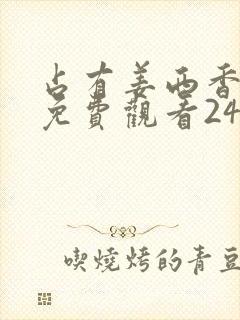 占有姜西香
免費觀看24
喫燒烤的青豆